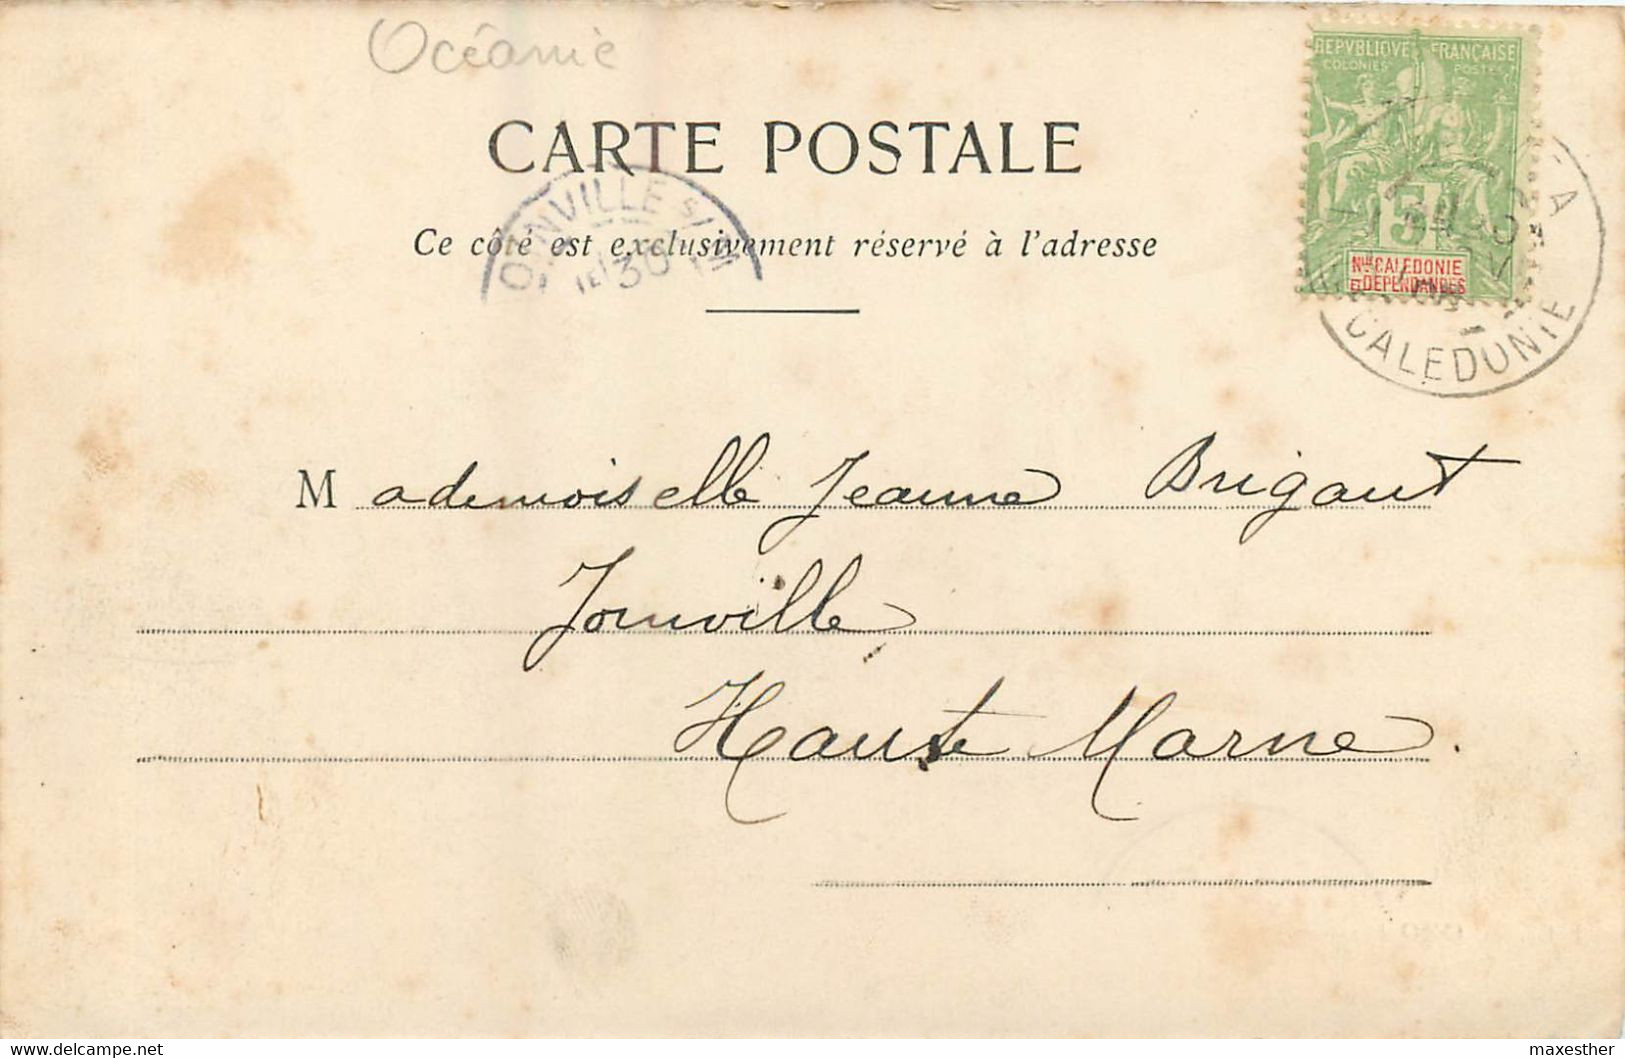 Océanie
REPVBLIQVE FRANÇAISE
COLONIES POSTES
CARTE POSTALE
5
Nlle CALEDONIE
ET DEPENDANCES
CALEDONIE
JOINVILLE S/M
30
Ce côté est exclusivement réservé à l'adresse
Mademoiselle Jeanne Brigaut
Joinville
Haute Marne.
Delcampe.net
maxesther